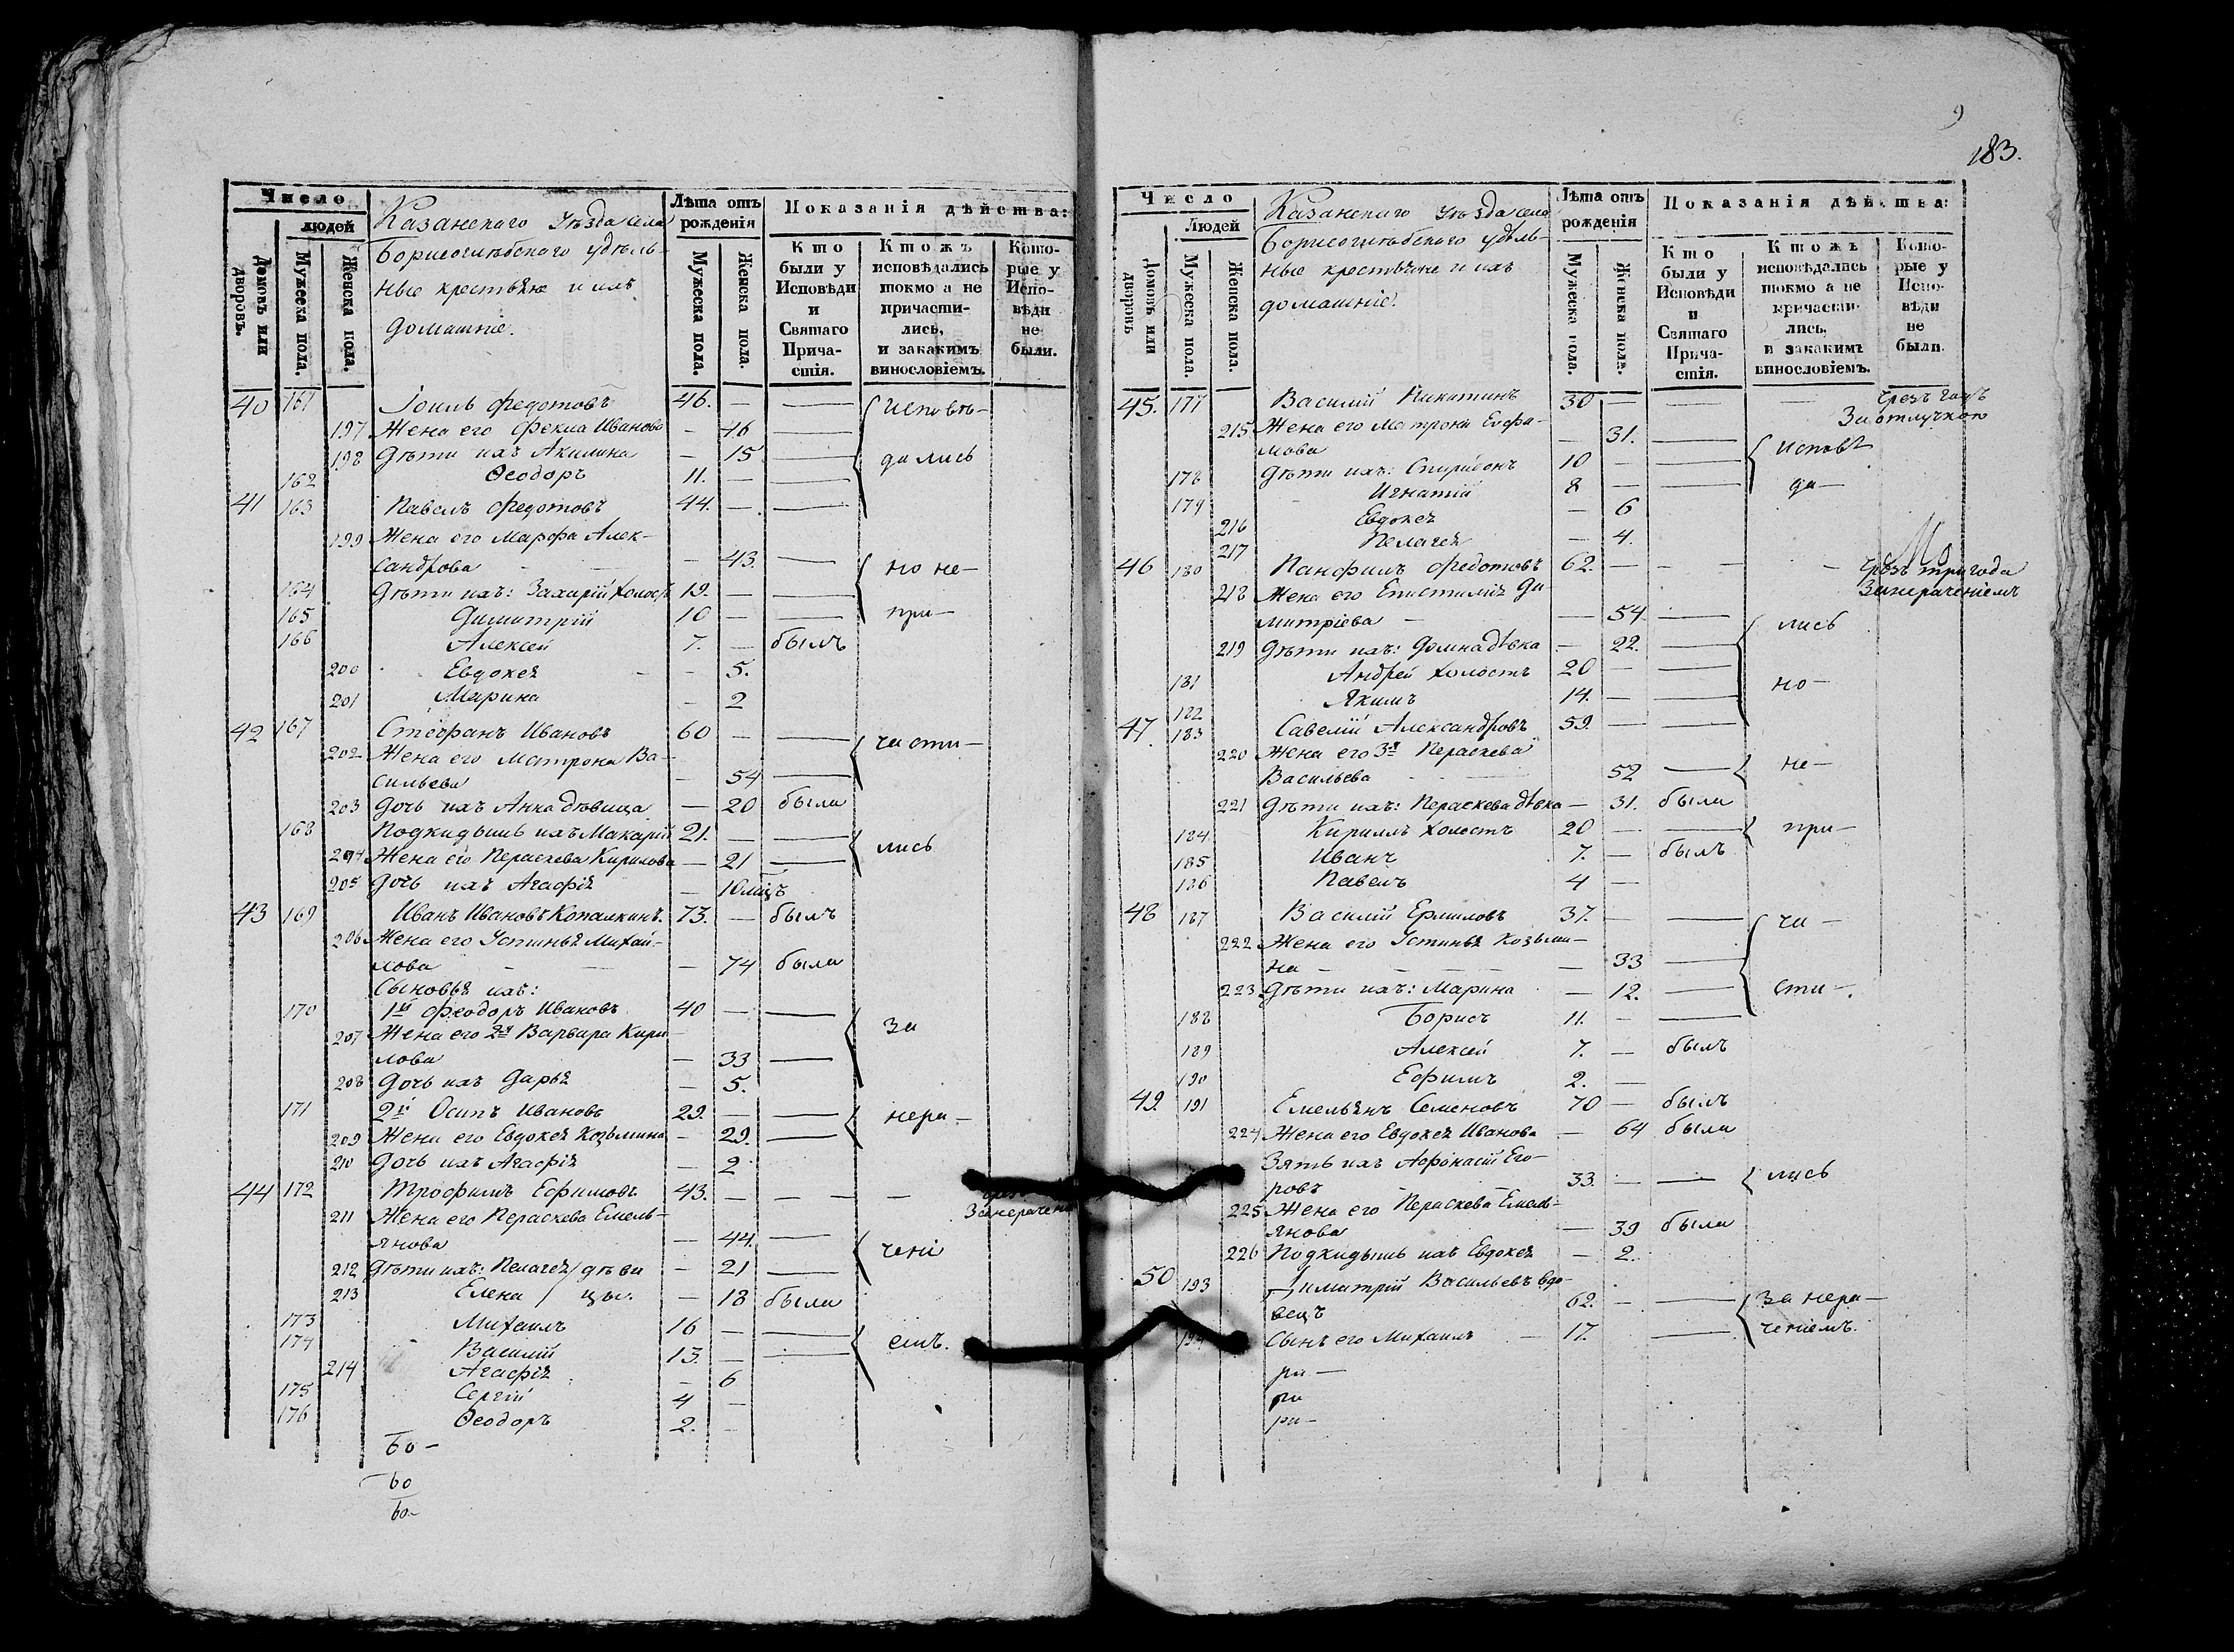 Число
людей
Домовъ или дворовъ.
Мужеска пола.
Женска пола.
Казанскаго уѣзда села
Борисоглѣбскаго удѣль-
ные крестьяне и ихъ
домашніе.
Лѣта отъ рожденія
Мужеска пола.
Женска пола.
Показанія дѣйства:
Кто были у Исповѣди и Святаго Прича-стія.
Ктожъ исповѣдались токмо а не причасти-лись, и закакимъ винословіемъ.
Кото-рые у Испо-вѣди не были.
40 161 Іоиль Федотовъ 46. — — Исповѣ-
197 Жена его Фекла Иванова — 46 —
198 Дѣти ихъ Акилина — 15 — дались
162 Ѳеодоръ 11. — —
41 163 Павелъ Федотовъ 44. — —
199 Жена его Марфа Алек-
сандрова — 43. — но не-
164 Дѣти ихъ: Захарій холостъ 19. — —
165 Димитрій 10 — — при-
166 Алексей 7. — былъ
200 Евдокея — 5.
201 Марина — 2
42 167 Стефанъ Ивановъ 60 — — части-
202 Жена его Матрона Ва-
сильева — 54 —
203 Дочь ихъ Анна дѣвица — 20 была
168 Подкидышъ ихъ Макарій 21. — — лись
204 Жена его Пераскева Кирилова — 21 —
205 Дочь ихъ Агафія — 10 мцъ
43 169 Иванъ Ивановъ Копалкинъ. 73. — былъ
206 Жена его Устинья Михай-
лова — 74 была
Сыновья ихъ:
170 1й Феодоръ Ивановъ 40 — — за
207 Жена его 2я Варвара Кири
лова — 33 —
208 Дочь ихъ Дарья — 5.
171 2й Осипъ Ивановъ 29. — — нера-
209 Жена его Евдокея Козьмина — 29. —
210 Дочь ихъ Агафія — 2
44 172 Трофимъ Ефимовъ 43. — — —
Занерачені
211 Жена его Пераскева Емель-
янова — 44. — чені
212 Дѣти ихъ: Пелагея / дѣви — 21 —
213 Елена / цы. — 18 была
173 Михаилъ 16 — —
174 Василій 13. — — емъ.
214 Агафія — 6
175 Сергій 4 —
176 Ѳеодоръ 2. —
60-
60
60-
9
183.
Число
Людей
Домовъ или дворовъ
Мужеска пола.
Женска пола.
Казанскаго уѣзда села
Борисоглѣбскаго удѣль-
ные крестьяне и ихъ
домашніе.
Лѣта отъ рожденія
Мужеска пола.
Женска пола.
Показанія дѣйства:
Кто были у Исповѣди и Святаго Прича-стія.
Ктожъ исповѣдались токмо а не причасти-лись, и закакимъ винословіемъ.
Кото-рые у Испо-вѣди не были.
45. 177 Василій Никитинъ 30 — — — Чрезъ годъ
За отлучкою
215 Жена его Матрона Евфи-
мова — 31. — Исповѣ
178 Дѣти ихъ: Спиридонъ 10 — —
179 Игнатій 8 — — да-
216 Евдокея — 6
217 Пелагея — 4.
46 180 Панфилъ Федотовъ 62. — — — — Чрезъ три года
Занераченіемъ
218 Жена его Епистимія Ди
митріева — 54. — лись
219 Дѣти ихъ: Домна дѣвка — 22. —
181 Андрей холостъ 20 — —
182 Якимъ 14. — — но-
47. 183 Савелій Александровъ 59. — —
220 Жена его 3я Пераскева
Васильева 52 — не-
221 Дѣти ихъ: Пераскева дѣвка — 31. была
184 Кирилъ холостъ 20 — — при-
185 Иванъ 7. — былъ
186 Павелъ 4 —
48 187 Василій Ермиловъ 37. — — ча-
222 Жена его Устинья Козьми-
на — 33 —
223 Дѣти ихъ: Марина — 12. — сти-.
188 Борисъ 11. — —
189 Алексей 7. — былъ
190 Ефимъ 2. —
49. 191 Емельянъ Семеновъ 70 — былъ
224 Жена его Евдокея Иванова — 64 была
Зять ихъ Афонасій Его-
ровъ 33. — — лись
225 Жена его Пераскева Емель-
янова — 39 была
226 Подкидышъ ихъ Евдокея — 2.
50 193 Димитрій Васильевъ вдо-
вецъ 62. — — за нера-
194 Сынъ его Михаилъ — 17. — ченіемъ.
ри-
ри
ри-